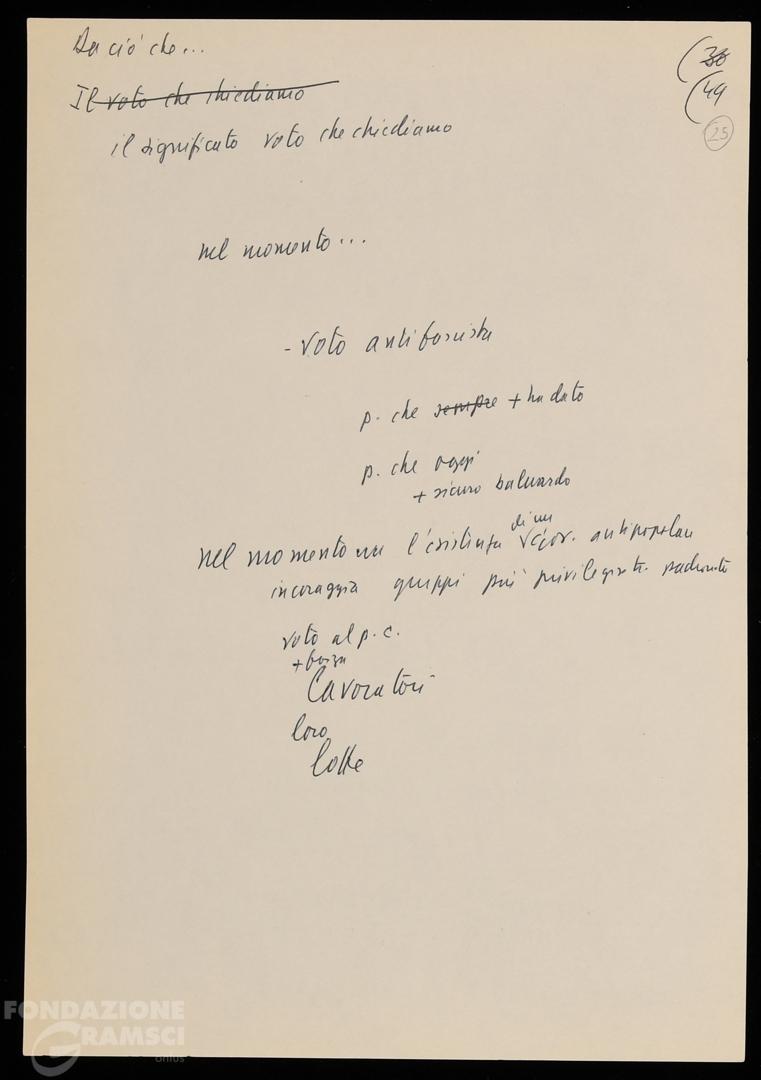 Da ciò che...
(38
Il voto che chiediamo
(49
il significato voto che chiediamo
25
nel momento...
- Voto antifascista
p. che sempre + ha dato
p. che oggi
+ sicuro baluardo
di un
nel momento l'esistenza gov. antipopolare
incoraggia gruppi più privilegiati padronato
voto al p.c.
+ forza
Lavoratori
loro
lotte
FONDAZIONE
GRAMSCI
onlus